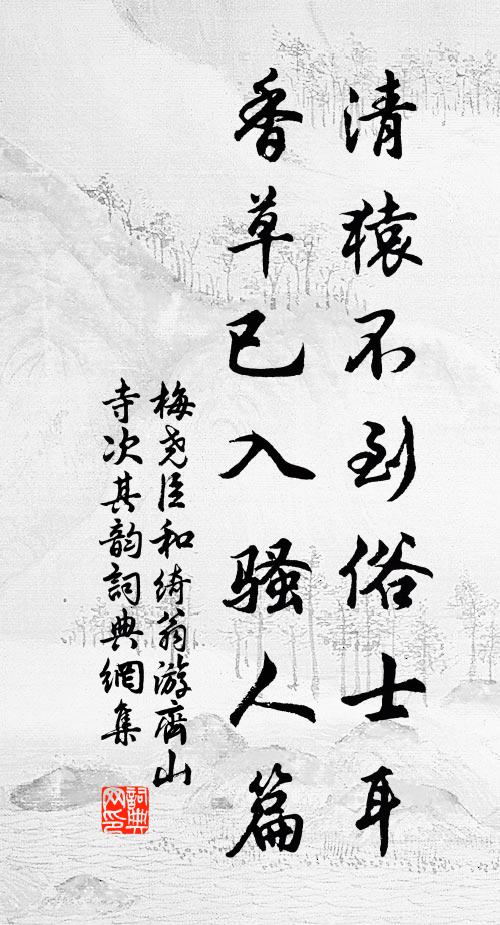 清猿不到俗士耳
香草已入骚人篇
梅尧臣和绮翁游齊山
寺次其韵詞典網集
詞典
网印